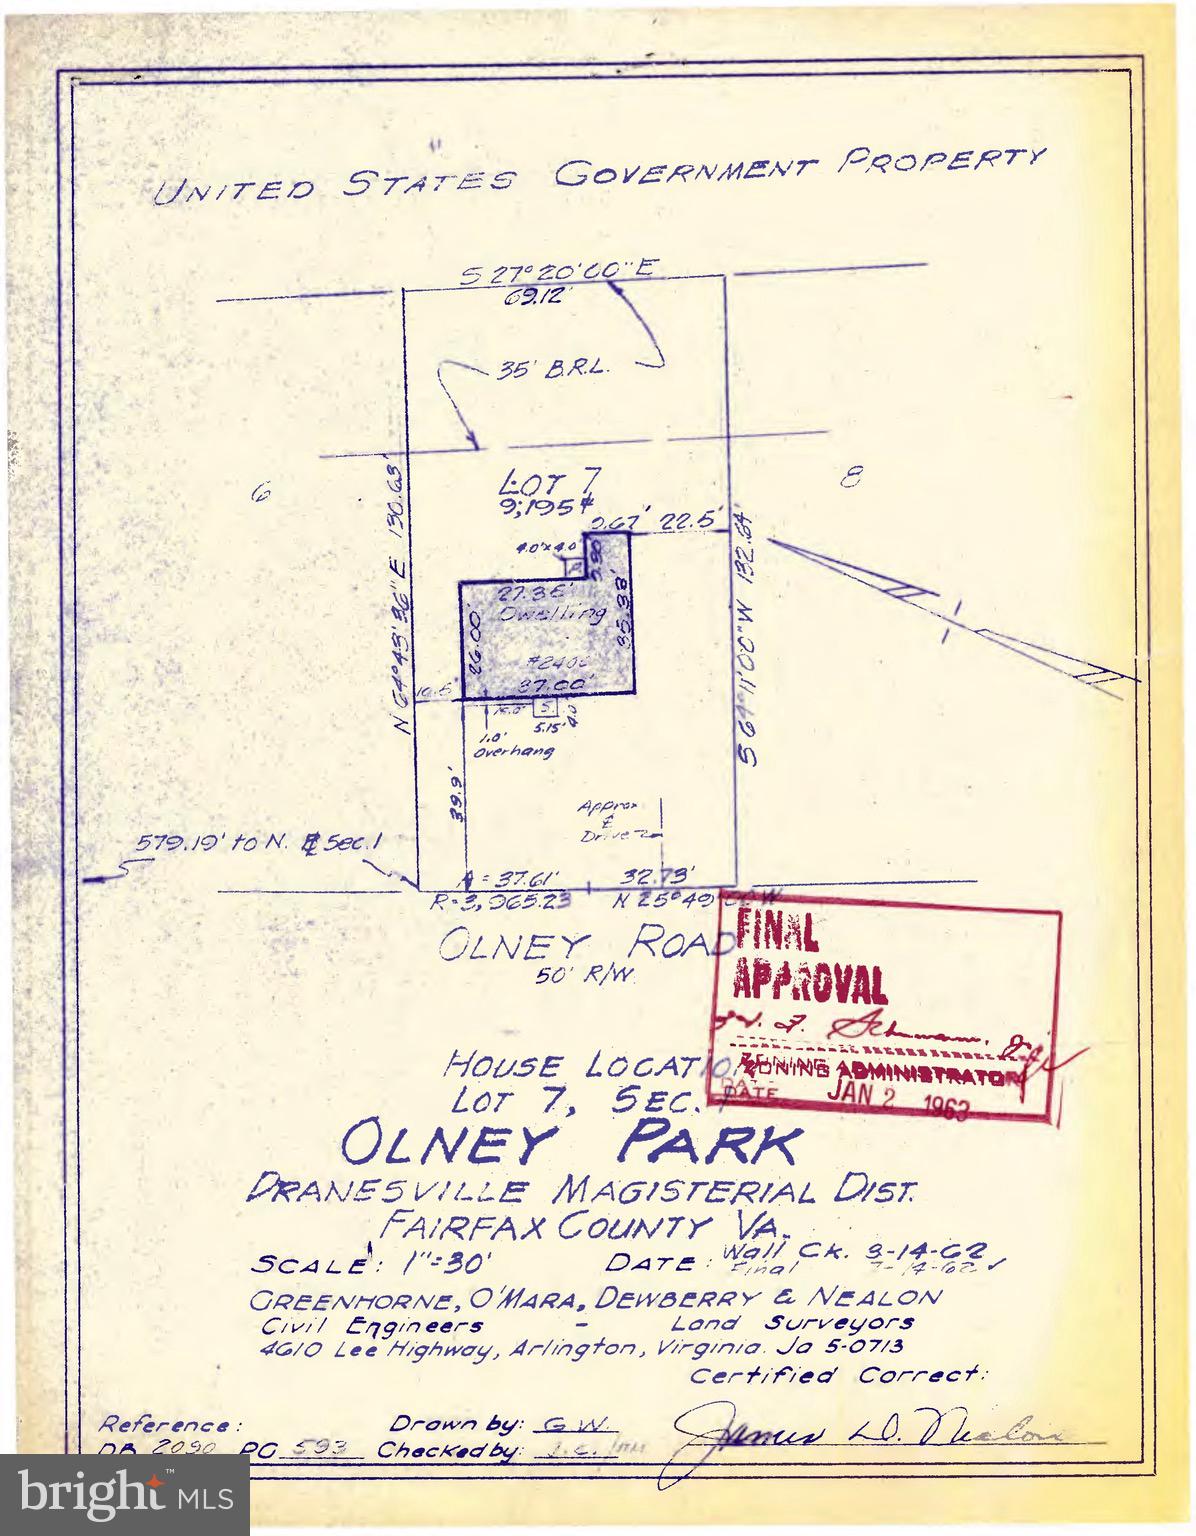 UNITED STATES GOVERNMENT PROPERTY
S 27° 20' 00" E
69.12'
35' B.R.L.
6
LOT 7
8
9,195
9.67' 22.5'
4.0'x4.0'
N 64° 43' 36" E 130.63'
27.36'
Dwelling
26.00'
35.33'
S 64° 11' 00" W 132.64'
37.00'
5.15' 4.0'
1.0'
Overhang
39.9'
Approx
℄
Drive
579.19' to N. ℄ Sec. 1
A = 37.61' 32.73'
R=3,965.23 N 25° 49' 00" W
OLNEY ROAD
50' R/W.
FINAL
APPROVAL
ZONING ADMINISTRATOR
DATE JAN 2 1963
HOUSE LOCATIO
LOT 7, SEC. 1
OLNEY PARK
DRANESVILLE MAGISTERIAL DIST.
FAIRFAX COUNTY VA.
SCALE: 1"=30' DATE: Wall Ck. 3-14-62
Final
GREENHORNE, O'MARA, DEWBERRY & NEALON
Civil Engineers - Land Surveyors
4610 Lee Highway, Arlington, Virginia. Ja 5-0713
Certified Correct:
Reference: Drawn by: G W James D. Nealon
DB 2090 PG 593 Checked by:
bright MLS